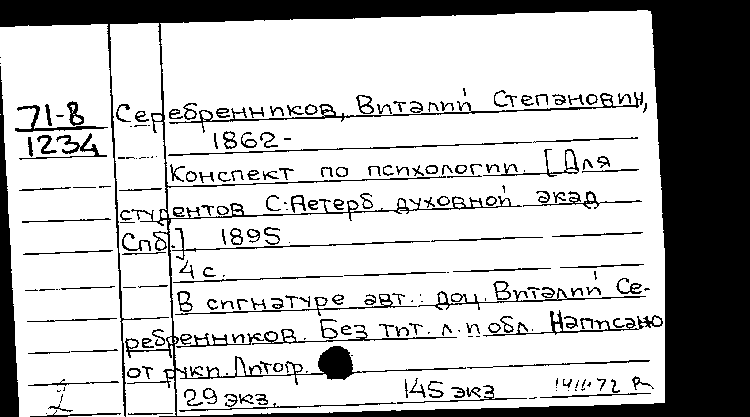 71-8 Серебренников, Виталий Степанович,
1234 1862-
Конспект по психологии. [Для
студентов С.-Петерб. духовной акад
Спб.] 1895.
4 с.
В сигнатуре авт.: доц. Виталий Се-
ребренников. Без тит. л. и обл. Написано
от руки. Литогр.
2 29 экз. 145 экз